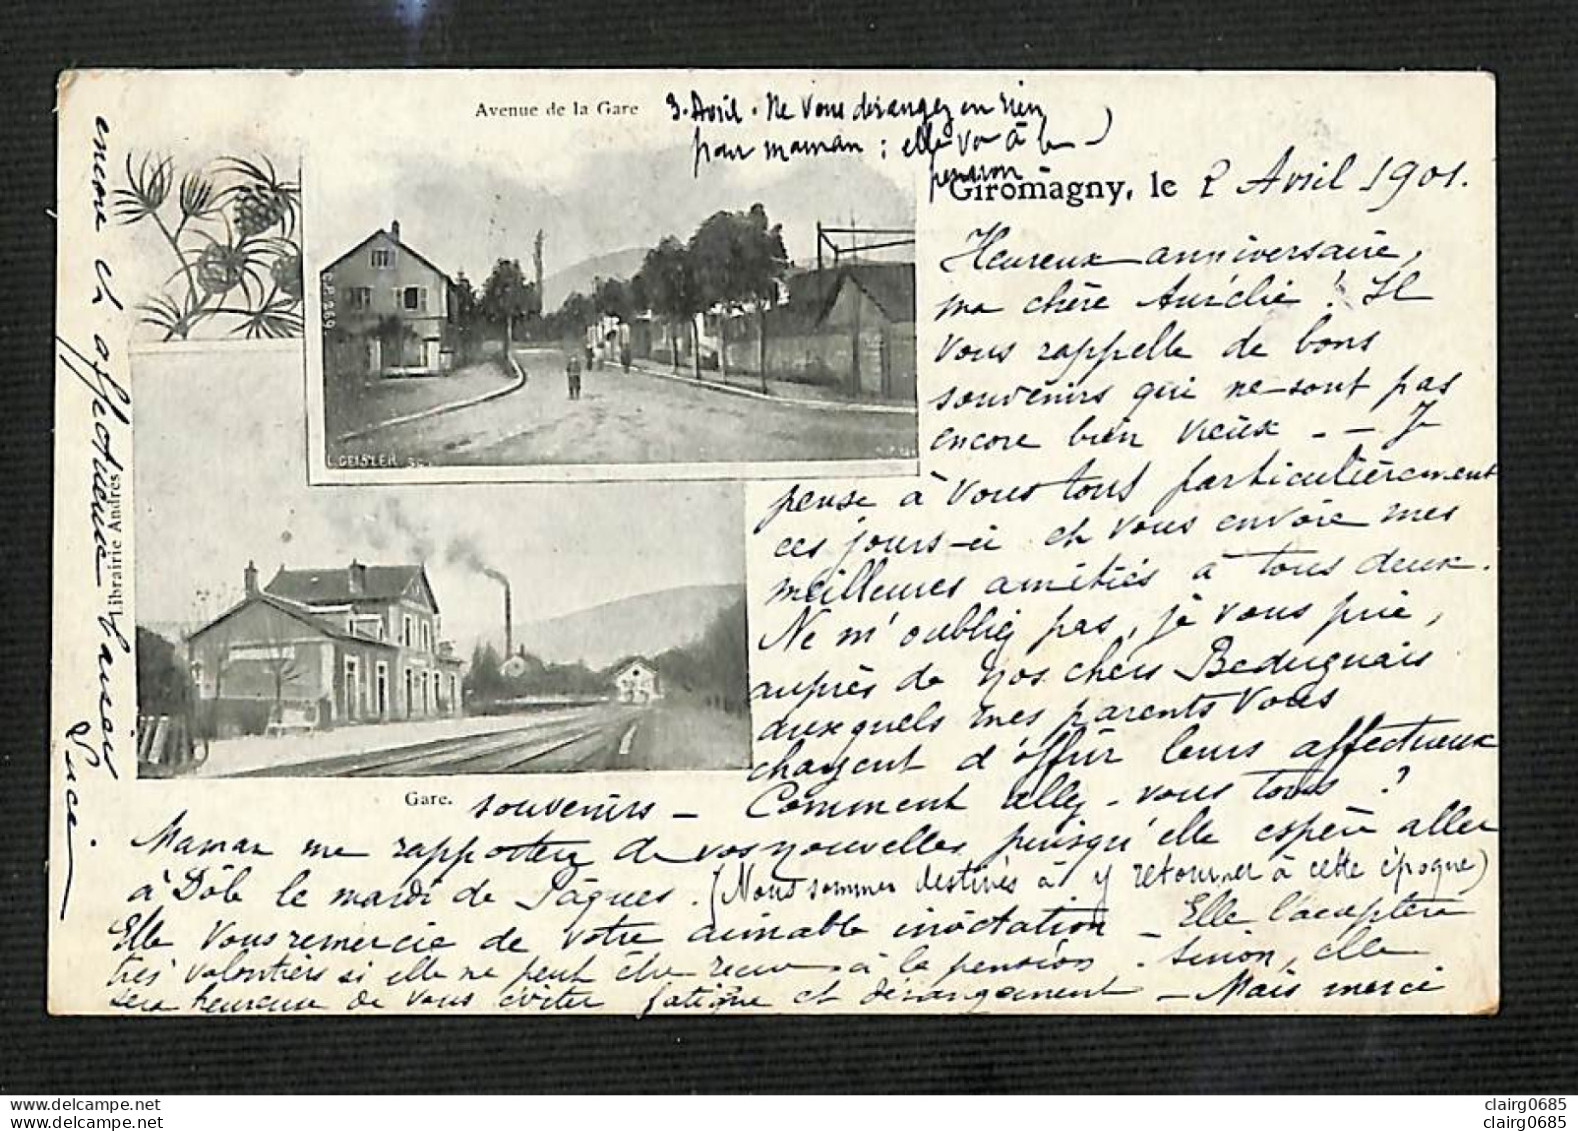 Avenue de la Gare
3. Avril. Ne vous dérangez en rien
pour maman : elle va à la
pension
Giromagny, le 2 Avril 1901.
Heureux anniversaire,
ma chère Aurélie ! Il
vous rappelle de bons
souvenirs qui ne sont pas
encore bien vieux - - Je
pense à vous tous particulièrement
ces jours-ci et vous envoie mes
meilleures amitiés à tous deux.
Ne m'oubliez pas, je vous prie,
auprès de nos chers Bedugnais
auxquels mes parents vous
chargent d'offrir leurs affectueux
souvenirs - Comment allez-vous tous ?
Maman me rapportera de vos nouvelles puisqu'elle espère aller
à Dôle le mardi de Pâques. (Nous sommes destinés à y retourner à cette époque)
Elle vous remercie de votre aimable invitation - Elle l'acceptera
très volontiers si elle ne peut être reçue à la pension. Sinon, elle
sera heureuse de vous éviter fatigue et dérangement - Mais merci
encore et affectueux baisers
Lucie
Librairie Andrés
L. GEISLER
Gare.
clairg0685
clairg0685
clairg0685
clairg0685